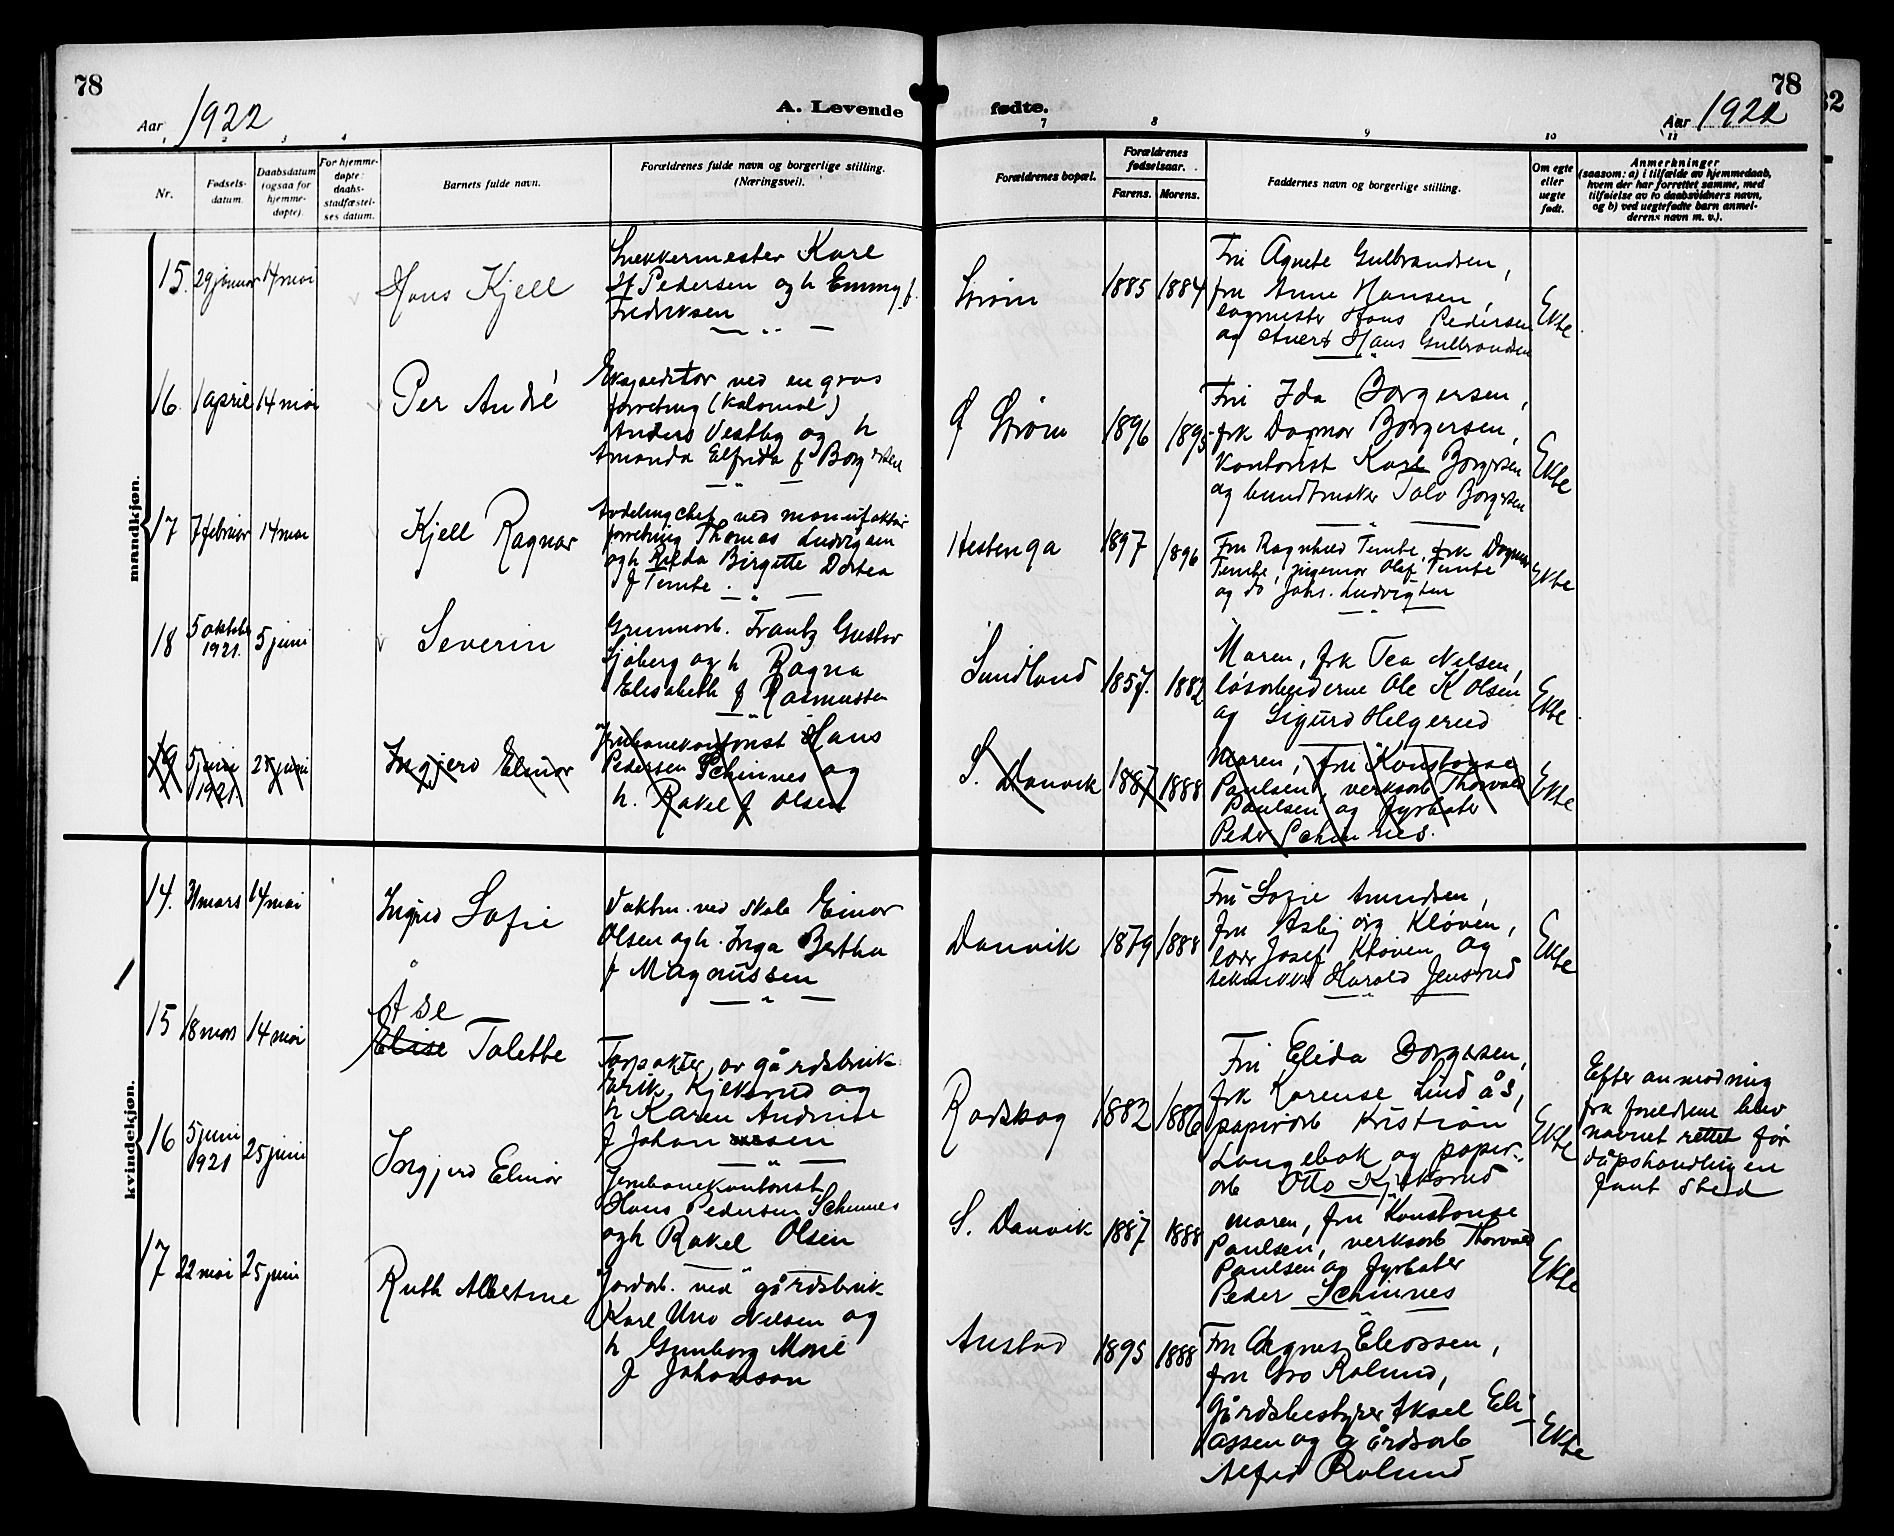 78
78
32
Aar 1922
A. Levende fødte.
Aar 1922
1 2 3 4 7 8 9 10 11
Nr.
Fødsels-
datum.
Daabsdatum
(ogsaa for
hjemme-
døpte).
For hjemme-
døpte:
daabs-
stadfæstel-
ses datum.
Barnets fulde navn.
Forældrenes fulde navn og borgerlige stilling.
(Næringsvei).
Forældrenes bopæl.
Forældrenes
fødselsaar.
Farens. Morens.
Faddernes navn og borgerlige stilling.
Om egte
eller
uegte
født.
Anmerkninger
(saasom: a) i tilfælde av hjemmedaab,
hvem der har forrettet samme, med
tilføielse av to daabsvidners navn,
og b) ved uegtefødte barn anmel-
derens navn m. v.).
mandkjøn.
15. 29 januar 14 mai
Hans Kjell
Snekkermester Karl
H Pedersen og h Emmy f.
Fredriksen
Strøm
1885 1884
Fru Agnete Gulbrandsen,
fru Anna Hansen,
sagmester Hans Pedersen
og stuert Hans Gulbrandsen
Ekte
16. 1 april 14 mai
Per André
Ekspeditør ved engros
forretning (kolonial)
Anders Vestby og h
Amanda Elfrida f Borgersen
Ø Strøm
1896 1895
Fru Ida Borgersen,
frk Dagmar Borgersen,
kontorist Karl Borgersen
og bundtmaker Tolv Borgersen
Ekte
17 7 februar 14 mai
Kjell Ragnar
Avdelingchef ved manufaktur
forretning Thomas Ludvigsen
og h Rilda Birgitte Dortea
f Tembe.
Hestenga
1897 1896
Fru Ragnhild Tembe, frk Dagmar
Tembe, ingeniør Olaf Tembe
og do Johs. Ludvigsen
Ekte
18 5 oktober
1921. 5 juni
Severin
Grunnarb. Frantz Gustav
Sjøberg og h Ragna
Elisabeth f Rasmussen
Sundland
1857. 1882
Moren, frk Tea Nilsen,
løsarbeiderne Ole K Olsen
og Sigurd Helgerud
Ekte
19 5 juni
1921 25 juni
Ingjerd Elinor
Jernbanekontorist Hans
Pedersen Schinnes og
h. Rakel f Olsen
S. Danvik
1887 1888
Moren, fru Konstanse
Paulsen, verksarb Thorvald
Paulsen og fyrbøter
Peder Schinnes.
Ekte
kvindekjøn.
14. 31 mars 14 mai
Ingrid Sofie
Vaktm. ved skole Einar
Olsen og h. Inga Bertha
f Magnussen
Danvik
1879 1888
Fru Sofie Amundsen,
fru Asbjørg Kløven,
lærer Josef Kløven og
tekniker Harald Jensrud
Ekte
15 18 mars 14 mai
Åse
Elise Talette
Forpakter av gårdsbruk
Erik Kjeksrud og
h Karen Andrine
f Johannesen
Rødskog
1882 1886
Fru Elida Borgersen,
frk Karense Lindås,
papirarb Kristian
Langebak og papir-
arb Otto Kjeksrud
Ekte
Efter anmodning
fra foreldrene blev
navnet rettet før
dåpshandlingen
fant sted
16 5 juni
1921 25 juni
Ingjerd Elinor
Jernbanekontorist
Hans Pedersen Schinnes
og h Rakel Olsen
S. Danvik
1887 1888
Moren, fru Konstanse
Paulsen, verksarb Thorvald
Paulsen og fyrbøter
Peder Schinnes
Ekte
17 22 mai 25 juni
Ruth Albertine
Jordarb. ved gårdsbruk
Karl Uno Nilsen og
h Gunborg Marie
f Johanson
Austad
1895 1888
Fru Agnes Eliassen,
fru Gro Rolund,
Gårdsbestyrer Aksel Eli-
assen og gårdsarb
Alfred Rolund
Ekte